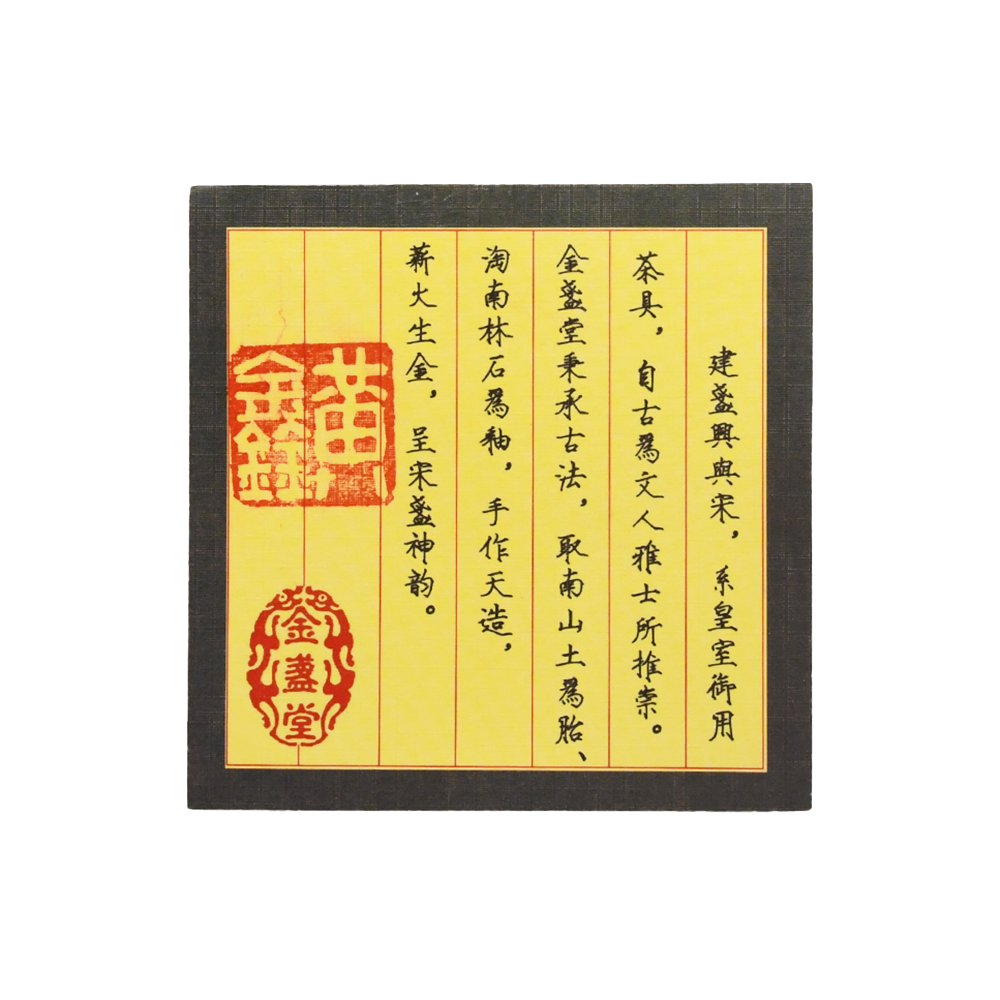 建盞興與宋，系皇室御用
茶具，自古爲文人雅士所推崇。
金盞堂秉承古法，取南山土爲胎、
淘南林石爲釉，手作天造，
薪火生金，呈宋盞神韵。
金盞堂